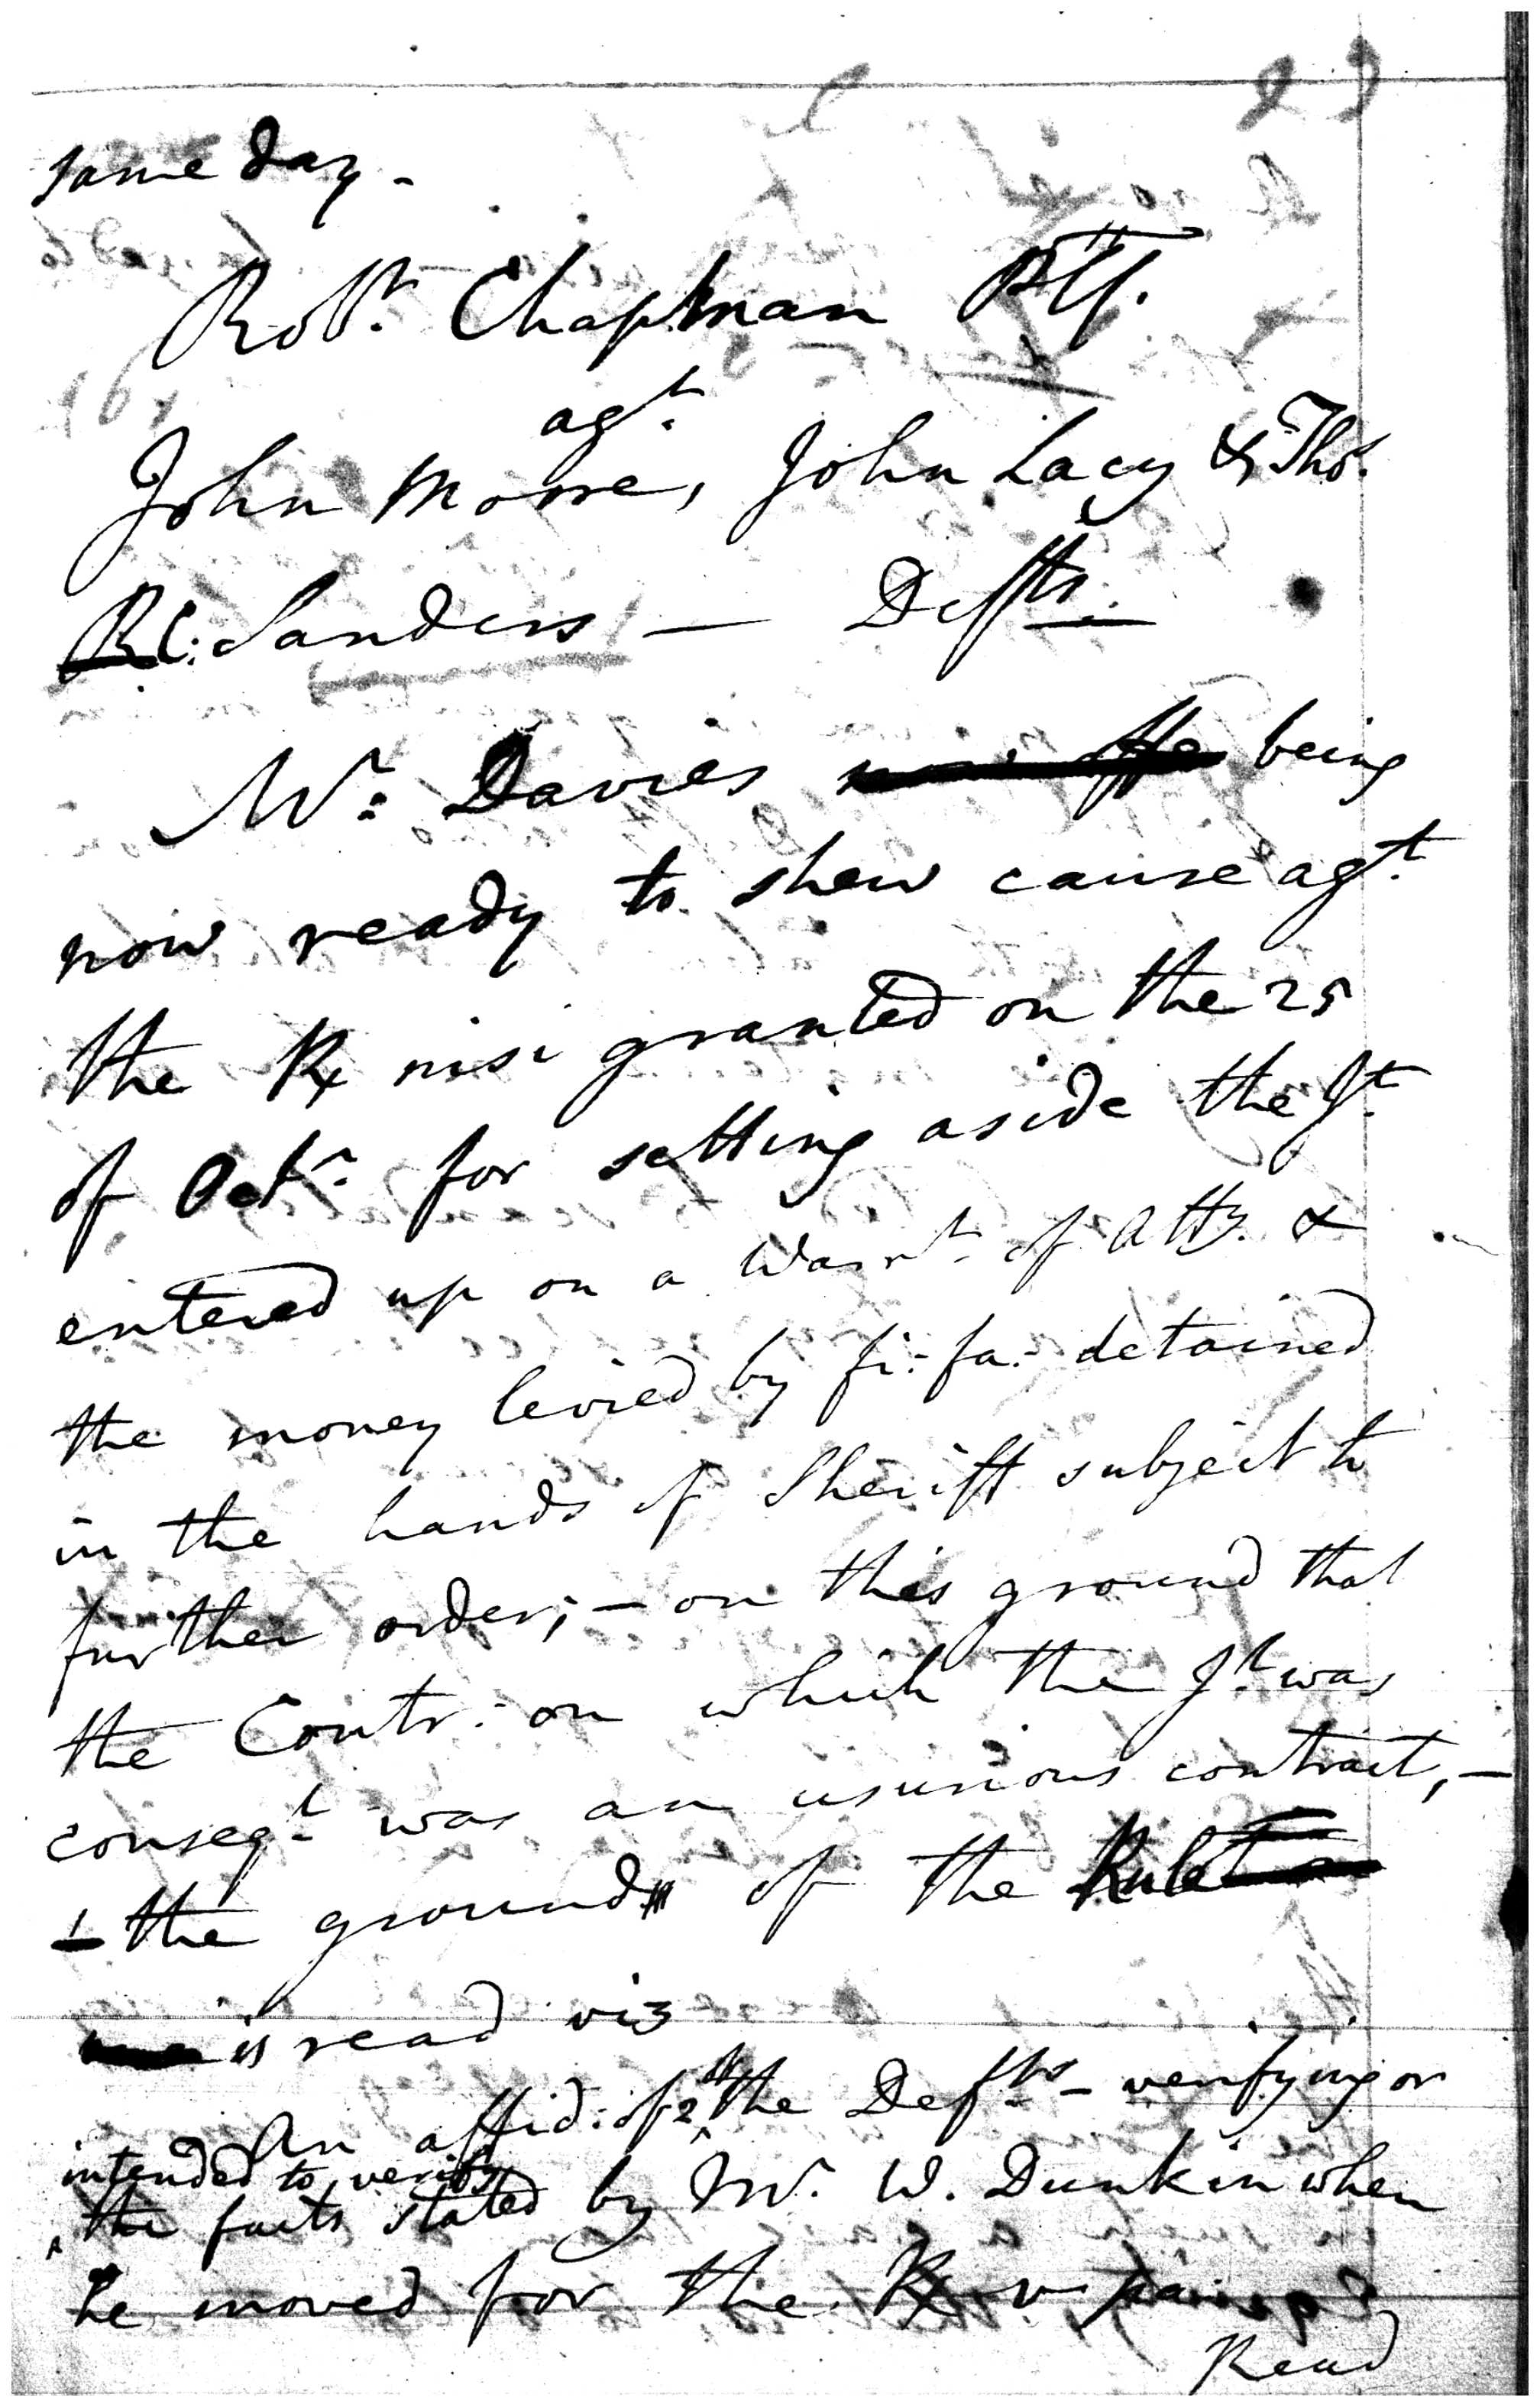 same day -
Robt. Chapman Pltf.
agt.
John Morre, John Lacy & Thos.
C: Sanders — Defts.
Mr. Davies being
now ready to shew cause agt.
the Rx nisi granted on the 25
of Octr. for setting aside the Jt.
entered up on a Warrt. of Atty. &
the money levied by fi: fa: detained
in the hands of Sheriff subject to
further order; — on this ground that
the Contr: on which the Jt. was
conseqt. was an usurious contract, —
— the ground of the Rule
is read viz
An affid: of 2 of the Defts - verifying or
intended to verify
the facts stated by Mr. W. Dunkin when
he moved for the Rx v.
Read